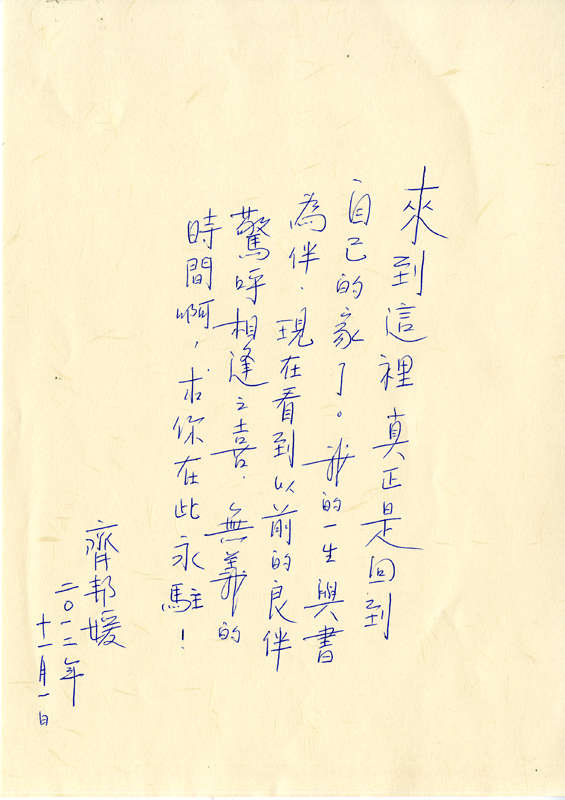 來到這裡真正是回到
自己的家了。我的一生與書
為伴．現在看到以前的良伴
驚呼相逢之喜．無義的
時間啊，求你在此永駐！
齊邦媛
二〇一二年
十一月一日